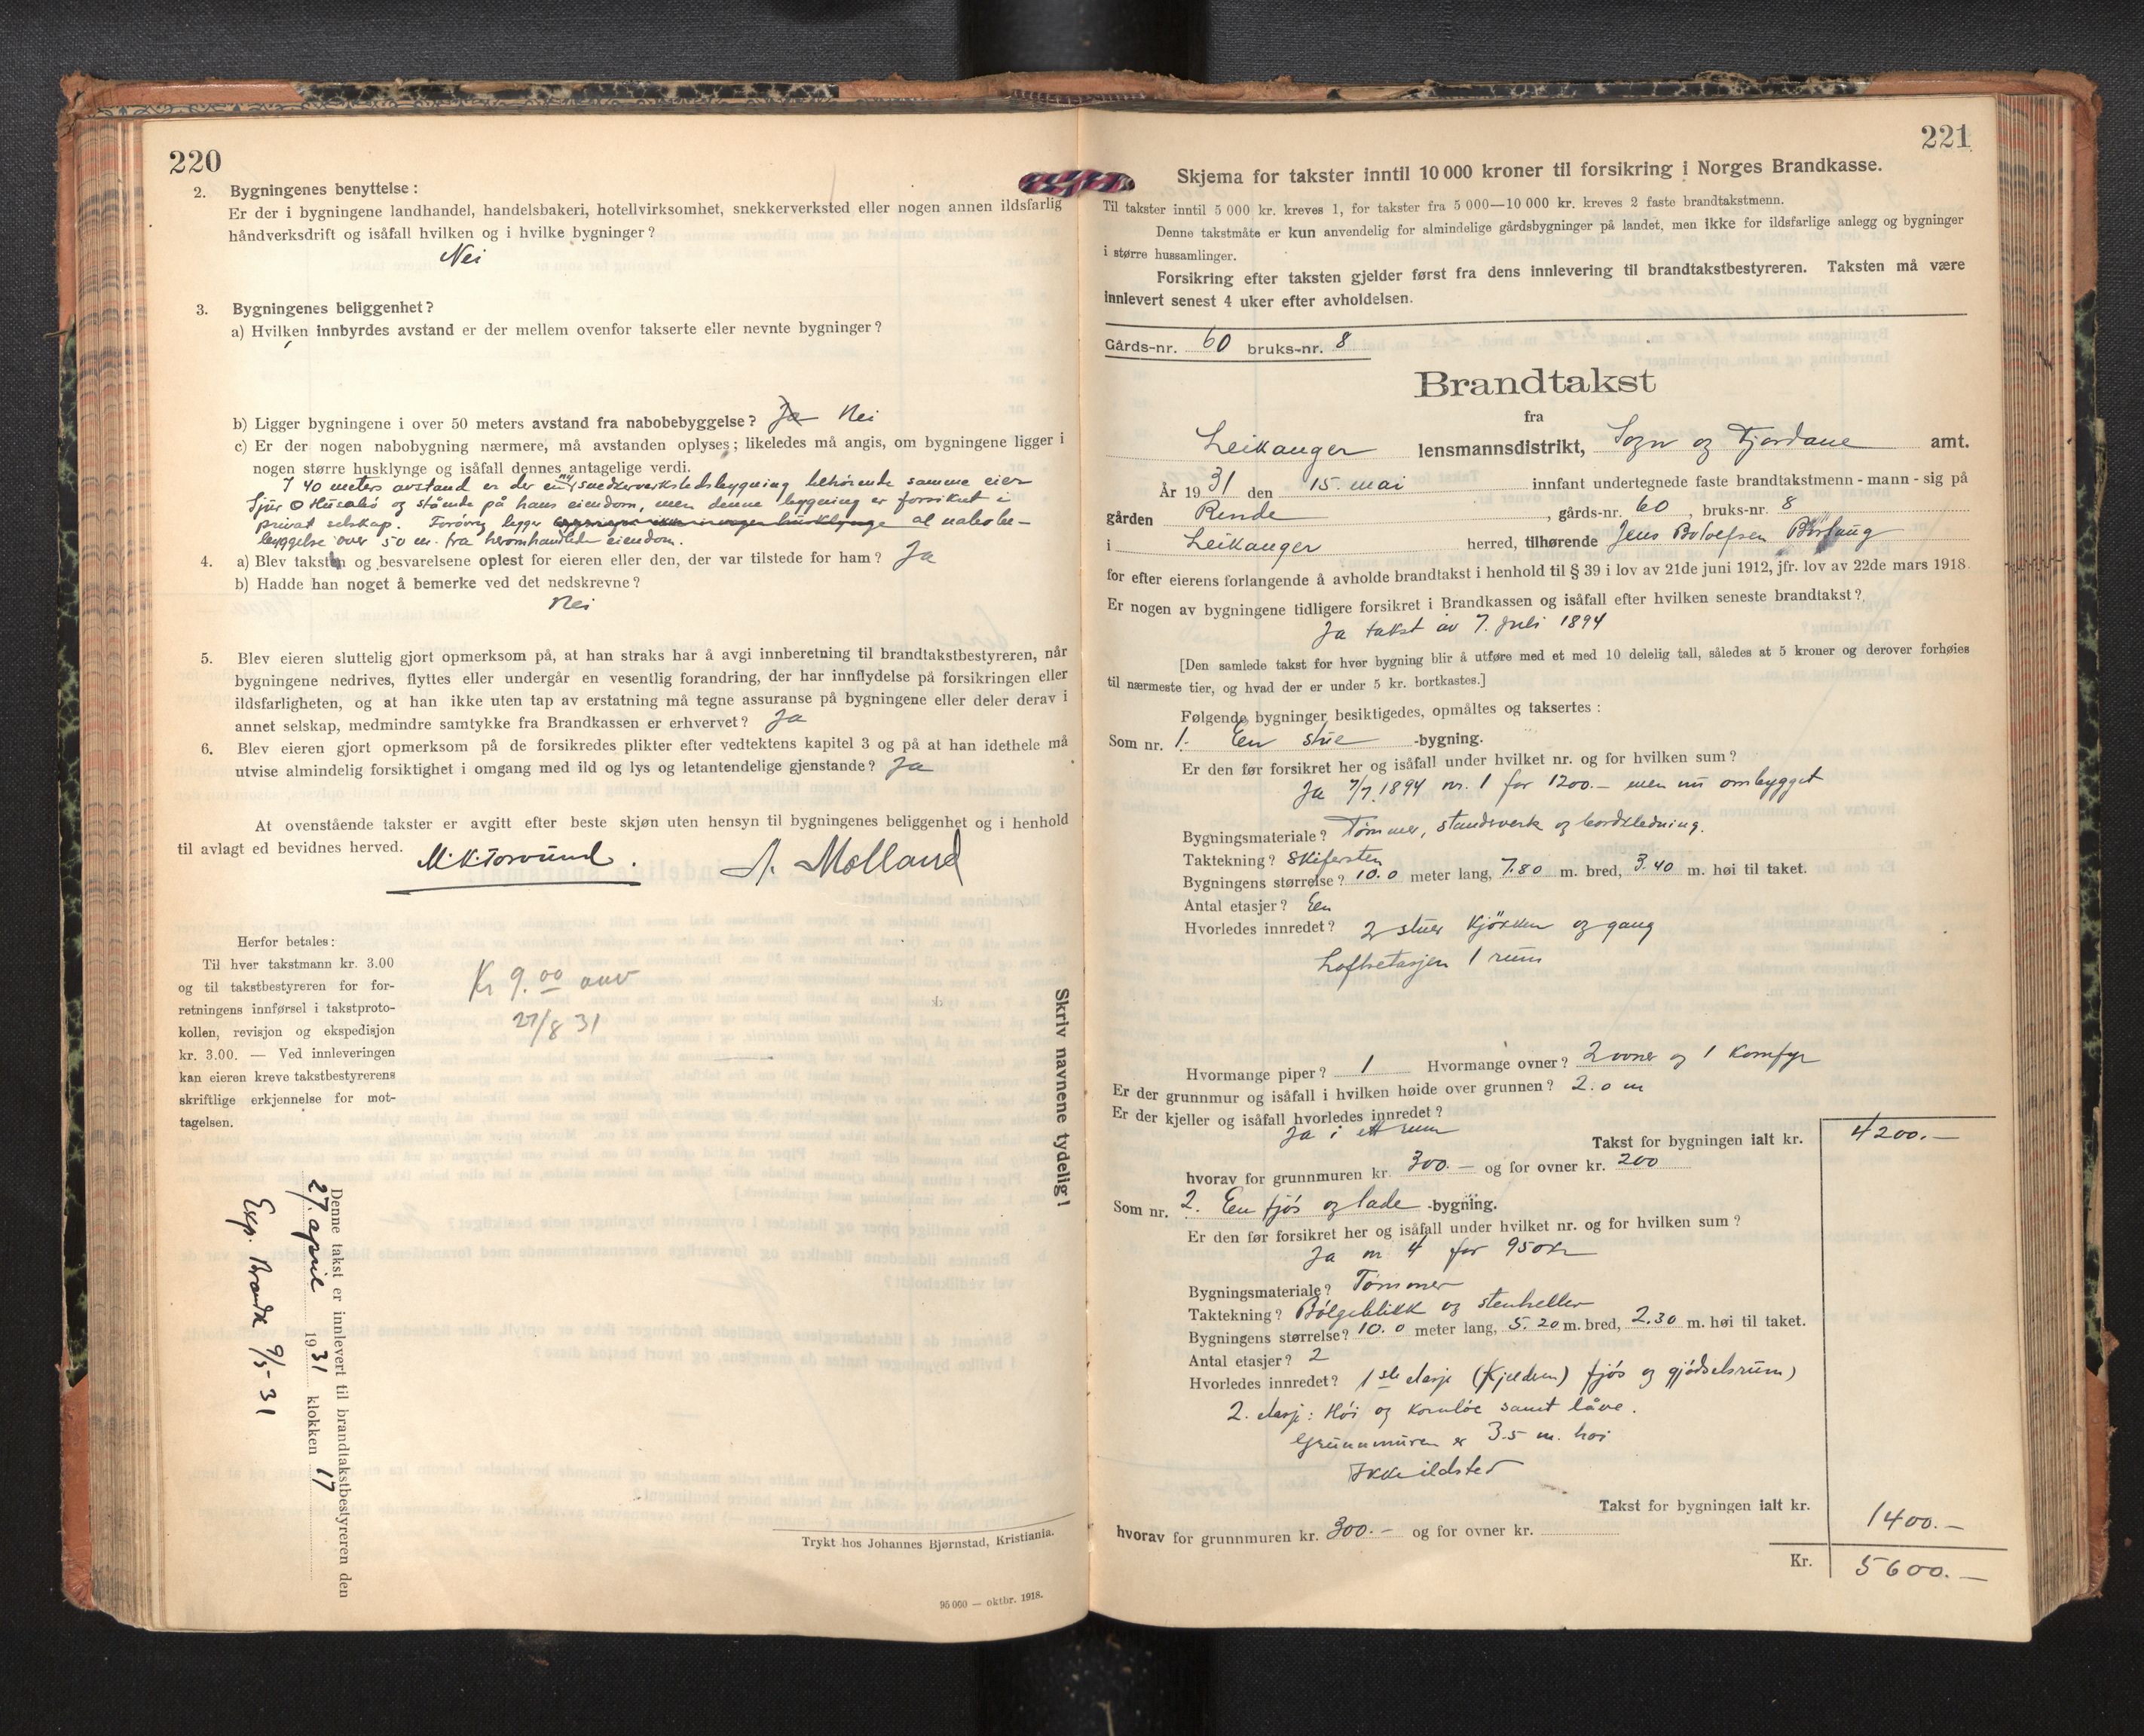 220
2. Bygningenes benyttelse:
Er der i bygningene landhandel, handelsbakeri, hotellvirksomhet, snekkerverksted eller nogen annen ildsfarlig
håndverksdrift og isåfall hvilken og i hvilke bygninger?
Nei
3. Bygningenes beliggenhet?
a) Hvilken innbyrdes avstand er der mellem ovenfor takserte eller nevnte bygninger?
b) Ligger bygningene i over 50 meters avstand fra nabobebyggelse? Ja Nei
c) Er der nogen nabobygning nærmere, må avstanden oplyses; likeledes må angis, om bygningene ligger i
nogen større husklynge og isåfall dennes antagelige verdi.
I 40 meters avstand er der en ny snedkerverkstedsbygning tilhörende samme eier
Sjur O Husabö og stående på hans eiendom, men denne bygning er forsikret i
privat selskap. Forövrig ligger al nabobe-
byggelse over 50 m. fra heromhandlede eiendom.
4. a) Blev taksten og besvarelsene oplest for eieren eller den, der var tilstede for ham? Ja
b) Hadde han noget å bemerke ved det nedskrevne?
Nei
5. Blev eieren sluttelig gjort opmerksom på, at han straks har å avgi innberetning til brandtakstbestyreren, når
bygningene nedrives, flyttes eller undergår en vesentlig forandring, der har innflydelse på forsikringen eller
ildsfarligheten, og at han ikke uten tap av erstatning må tegne assuranse på bygningene eller deler derav i
annet selskap, medmindre samtykke fra Brandkassen er erhvervet? Ja
6. Blev eieren gjort opmerksom på de forsikredes plikter efter vedtektens kapitel 3 og på at han idethele må
utvise almindelig forsiktighet i omgang med ild og lys og letantendelige gjenstande? Ja
At ovenstående takster er avgitt efter beste skjøn uten hensyn til bygningenes beliggenhet og i henhold
til avlagt ed bevidnes herved.
M. K. Torvund. A. Molland
Herfor betales:
Til hver takstmann kr. 3.00
og til takstbestyreren for for-
retningens innførsel i takstproto-
kollen, revisjon og ekspedisjon
kr. 3.00. — Ved innleveringen
kan eieren kreve takstbestyrerens
skriftlige erkjennelse for mot-
tagelsen.
Kr 9.00 anv
27/8 31
Skriv navnene tydelig!
Denne takst er innlevert til brandtakstbestyreren den
27. april 1931 klokken 17
Exp. Brandk 9/5-31
Trykt hos Johannes Bjørnstad, Kristiania.
95 000 — oktbr. 1918.
221
Skjema for takster inntil 10 000 kroner til forsikring i Norges Brandkasse.
Til takster inntil 5 000 kr. kreves 1, for takster fra 5 000—10 000 kr. kreves 2 faste brandtakstmenn.
Denne takstmåte er kun anvendelig for almindelige gårdsbygninger på landet, men ikke for ildsfarlige anlegg og bygninger
i større hussamlinger.
Forsikring efter taksten gjelder først fra dens innlevering til brandtakstbestyreren. Taksten må være
innlevert senest 4 uker efter avholdelsen.
Gårds-nr. 60 bruks-nr. 8
Brandtakst
fra
Leikanger lensmannsdistrikt, Sogn og Fjordane amt.
År 1931 den 15. mai innfant undertegnede faste brandtakstmenn - mann - sig på
gården Rinde, gårds-nr. 60, bruks-nr. 8
i Leikanger herred, tilhørende Jens Botolfsen
for efter eierens forlangende å avholde brandtakst i henhold til § 39 i lov av 21de juni 1912, jfr. lov av 22de mars 1918.
Er nogen av bygningene tidligere forsikret i Brandkassen og isåfall efter hvilken seneste brandtakst?
Ja takst av 7. Juli 1894
[Den samlede takst for hver bygning blir å utføre med et med 10 delelig tall, således at 5 kroner og derover forhøies
til nærmeste tier, og hvad der er under 5 kr. bortkastes.]
Følgende bygninger besiktigedes, opmåltes og taksertes:
Som nr. 1. Een stue -bygning.
Er den før forsikret her og isåfall under hvilket nr. og for hvilken sum?
Ja 7/7.1894 nr. 1 for 1200.— men nu ombygget
Bygningsmateriale? Tömmer, standverk og bordkledning.
Taktekning? Skifersten
Bygningens størrelse? 10.0 meter lang, 7.80 m. bred, 3.40 m. høi til taket.
Antal etasjer? Een
Hvorledes innredet? 2 stuer kjökken og gang
Loftsetasjen 1 rum
Hvormange piper? 1 Hvormange ovner? 2 ovner og 1 komfyr
Er der grunnmur og isåfall i hvilken høide over grunnen? 2.0 m
Er der kjeller og isåfall hvorledes innredet?
Ja i ett rum
Takst for bygningen ialt kr. 4200.—
hvorav for grunnmuren kr. 300.— og for ovner kr. 200
Som nr. 2. Een fjös og lade -bygning.
Er den før forsikret her og isåfall under hvilket nr. og for hvilken sum?
Ja nr. 4 for 950 kr
Bygningsmateriale? Tömmer
Taktekning? Bölgeblikk og stenheller
Bygningens størrelse? 10.0 meter lang, 5.20 m. bred, 2.30 m. høi til taket.
Antal etasjer? 2
Hvorledes innredet? 1ste etasje (kjelderen) fjös og gjödselsrum)
2. etasje: Höi og kornlöe samt låve.
Grunnmuren er 3.5 m. höi
Ikke ildsted
Takst for bygningen ialt kr. 1400.—
hvorav for grunnmuren kr. 300.— og for ovner kr.
Kr. 5600.—